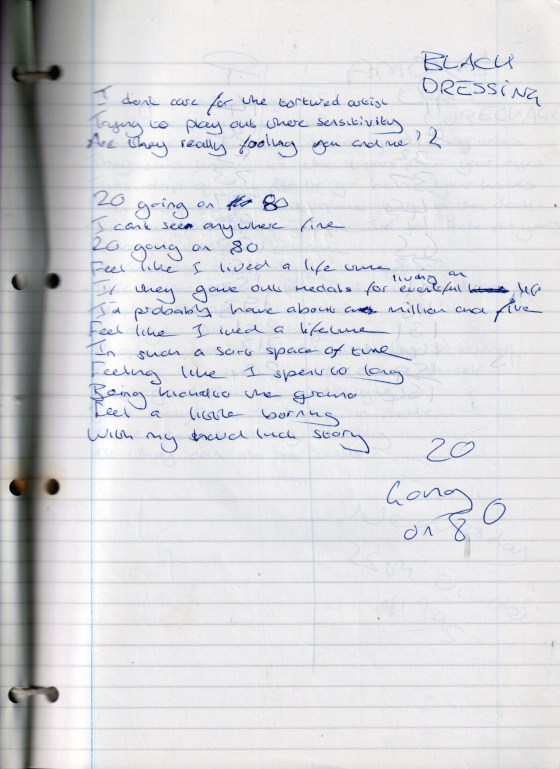 BLACK
DRESSING
I dont care for the tortured artist
Trying to play out there sensitivity
Are they really fooling you and me?
20 going on 80
I cant see anywhere fine
20 going on 80
Feel like I lived a life time
If they gave out medals for living an eventful life
I'd probably have about a million and five
Feel like I lived a lifetime
In such a sort space of time
Feeling like I spent to long
Being the
Feel a little borring
With my hard luck story
20
Going
on 80